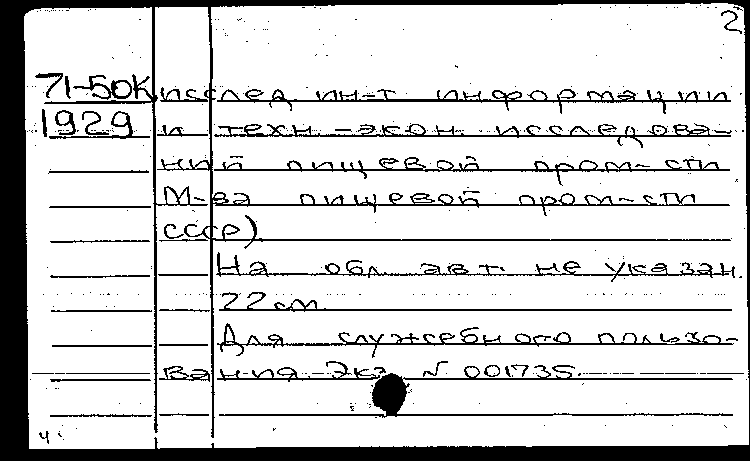 2
71-50К исслед. ин-т информации
1929 и техн.-экон. исследова-
ний пищевой пром-сти
М-ва пищевой пром-сти
СССР).
На обл. авт. не указан.
22 см.
Для служебного пользо-
вания. Экз. № 001735.